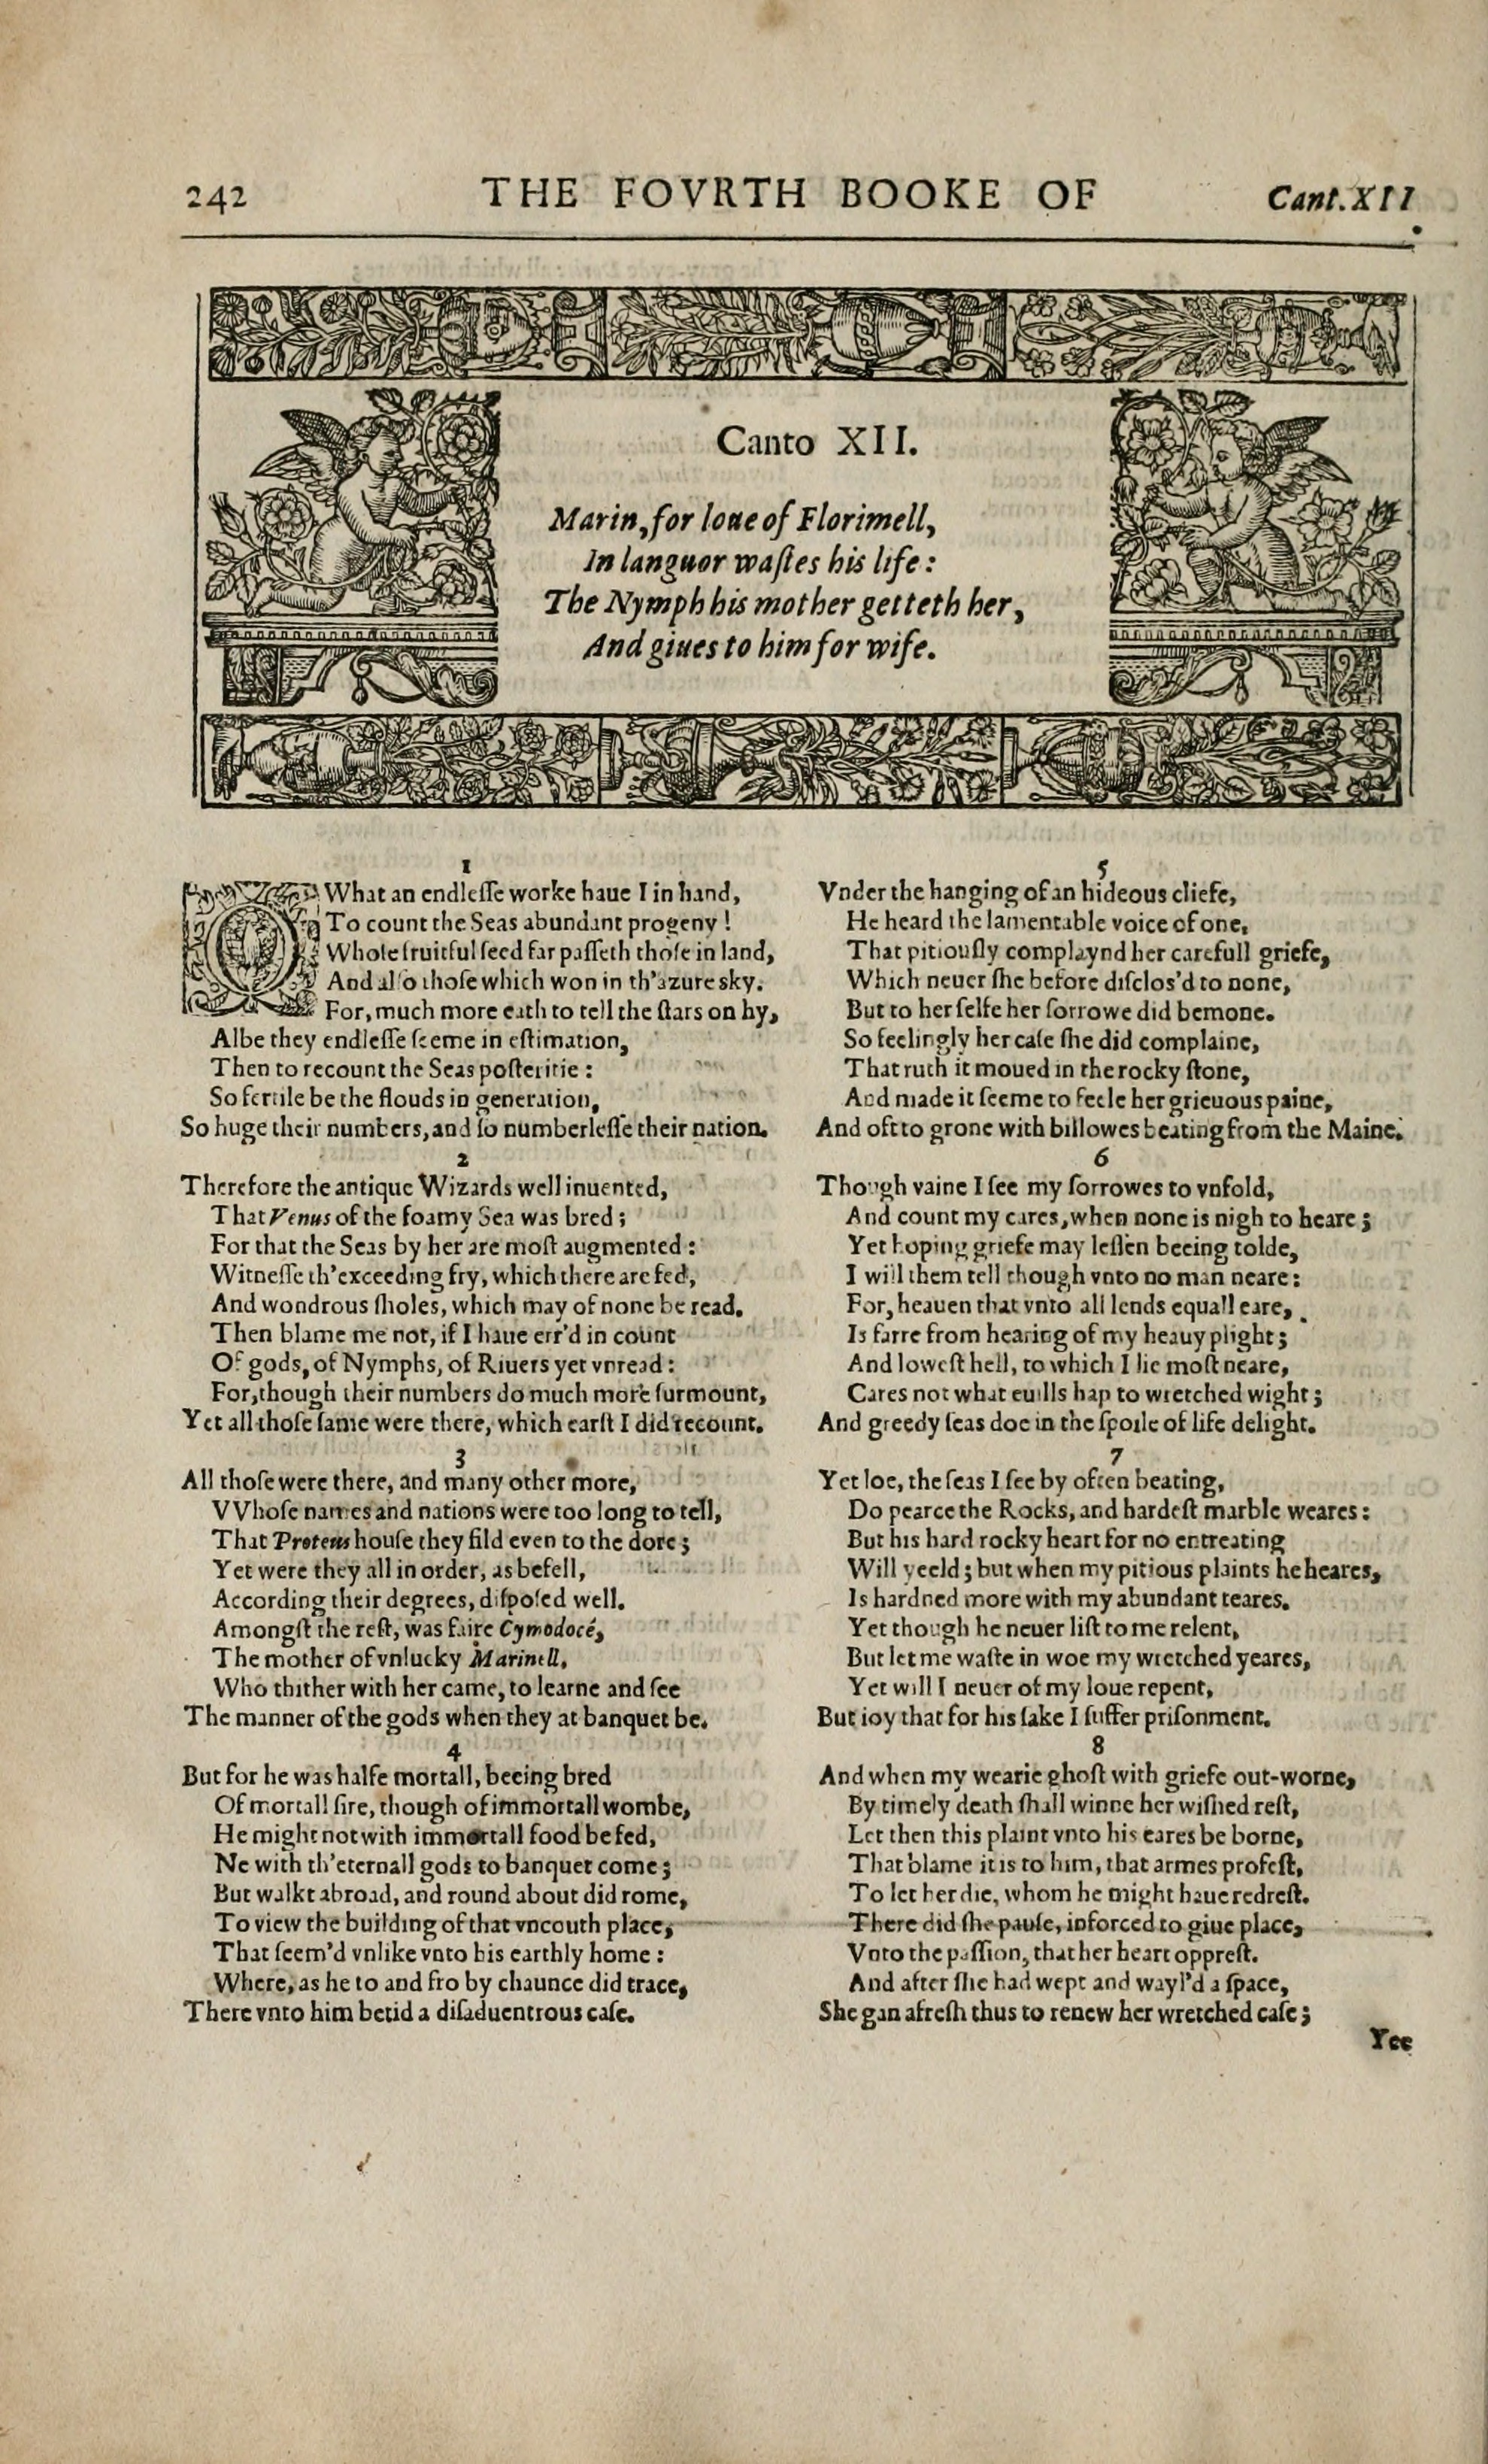 242 THE FOVRTH BOOKE OF Cant.XII.
Canto XII.
Marin, for loue of Florimell,
In languor waſtes his life:
The Nymph his mother getteth her,
And giues to him for wife.
1
O What an endleſſe worke haue I in hand,
To count the Seas abundant progeny!
Whoſe fruitful ſeed far paſſeth thoſe in land,
And alſo thoſe which won in th'azure sky.
For, much more eath to tell the ſtars on hy,
Albe they endleſſe ſeeme in eſtimation,
Then to recount the Seas poſteritie:
So fertile be the flouds in generation,
So huge their numbers, and ſo numberleſſe their nation.
2
Therefore the antique Wizards well inuented,
That Venus of the foamy Sea was bred;
For that the Seas by her are moſt augmented:
Witneſſe th'exceeding fry, which there are fed,
And wondrous ſholes, which may of none be read.
Then blame me not, if I haue err'd in count
Of gods, of Nymphs, of Riuers yet vnread:
For, though their numbers do much more ſurmount,
Yet all thoſe ſame were there, which earſt I did recount.
3
All thoſe were there, and many other more,
VVhoſe names and nations were too long to tell,
That Proteus houſe they fild even to the dore;
Yet were they all in order, as befell,
According their degrees, diſpoſed well.
Amongſt the reſt, was faire Cymodocé,
The mother of vnlucky Marinell,
Who thither with her came, to learne and ſee
The manner of the gods when they at banquet be.
4
But for he was halfe mortall, beeing bred
Of mortall ſire, though of immortall wombe,
He might not with immortall food be fed,
Ne with th'eternall gods to banquet come;
But walkt abroad, and round about did rome,
To view the building of that vncouth place,
That ſeem'd vnlike vnto his earthly home:
Where, as he to and fro by chaunce did trace,
There vnto him betid a diſaduentrous caſe.
5
Vnder the hanging of an hideous cliefe,
He heard the lamentable voice of one,
That pitiouſly complaynd her carefull griefe,
Which neuer ſhe before diſclos'd to none,
But to her ſelfe her ſorrowe did bemone.
So feelingly her caſe ſhe did complaine,
That ruth it moued in the rocky ſtone,
And made it ſeeme to feele her grieuous paine,
And oft to grone with billowes beating from the Maine.
6
Though vaine I ſee my ſorrowes to vnfold,
And count my cares, when none is nigh to heare;
Yet hoping griefe may leſſen beeing tolde,
I will them tell though vnto no man neare:
For, heauen that vnto all lends equall eare,
Is farre from hearing of my heauy plight;
And loweſt hell, to which I lie moſt neare,
Cares not what euills hap to wretched wight;
And greedy ſeas doe in the ſpoile of life delight.
7
Yet loe, the ſeas I ſee by often beating,
Do pearce the Rocks, and hardeſt marble weares:
But his hard rocky heart for no entreating
Will yeeld; but when my pitious plaints he heares,
Is hardned more with my abundant teares.
Yet though he neuer liſt to me relent,
But let me waſte in woe my wretched yeares,
Yet will I neuer of my loue repent,
But ioy that for his ſake I ſuffer priſonment.
8
And when my wearie ghoſt with griefe out-worne,
By timely death ſhall winne her wiſhed reſt,
Let then this plaint vnto his eares be borne,
That blame it is to him, that armes profeſt,
To let her die, whom he might haue redreſt.
There did ſhe pauſe, inforced to giue place,
Vnto the paſſion, that her heart oppreſt.
And after ſhe had wept and wayl'd a ſpace,
She gan afreſh thus to renew her wretched caſe;
Yee